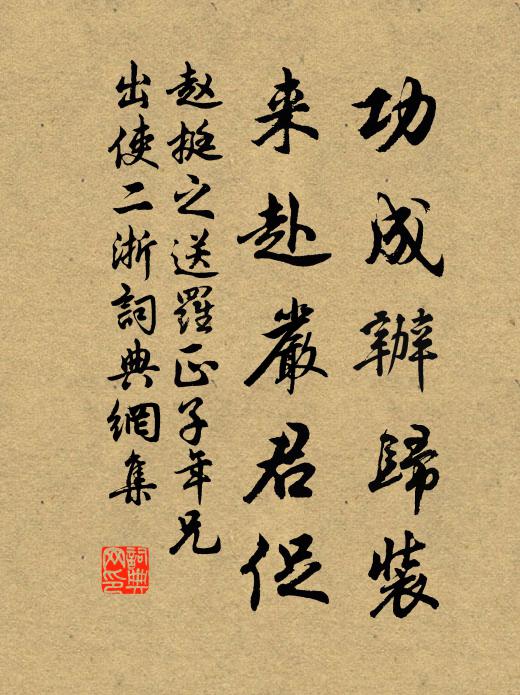 功成辦歸裝
来赴嚴君促
赵挺之送羅正子年兄
出使二浙詞典網集
詞典网印